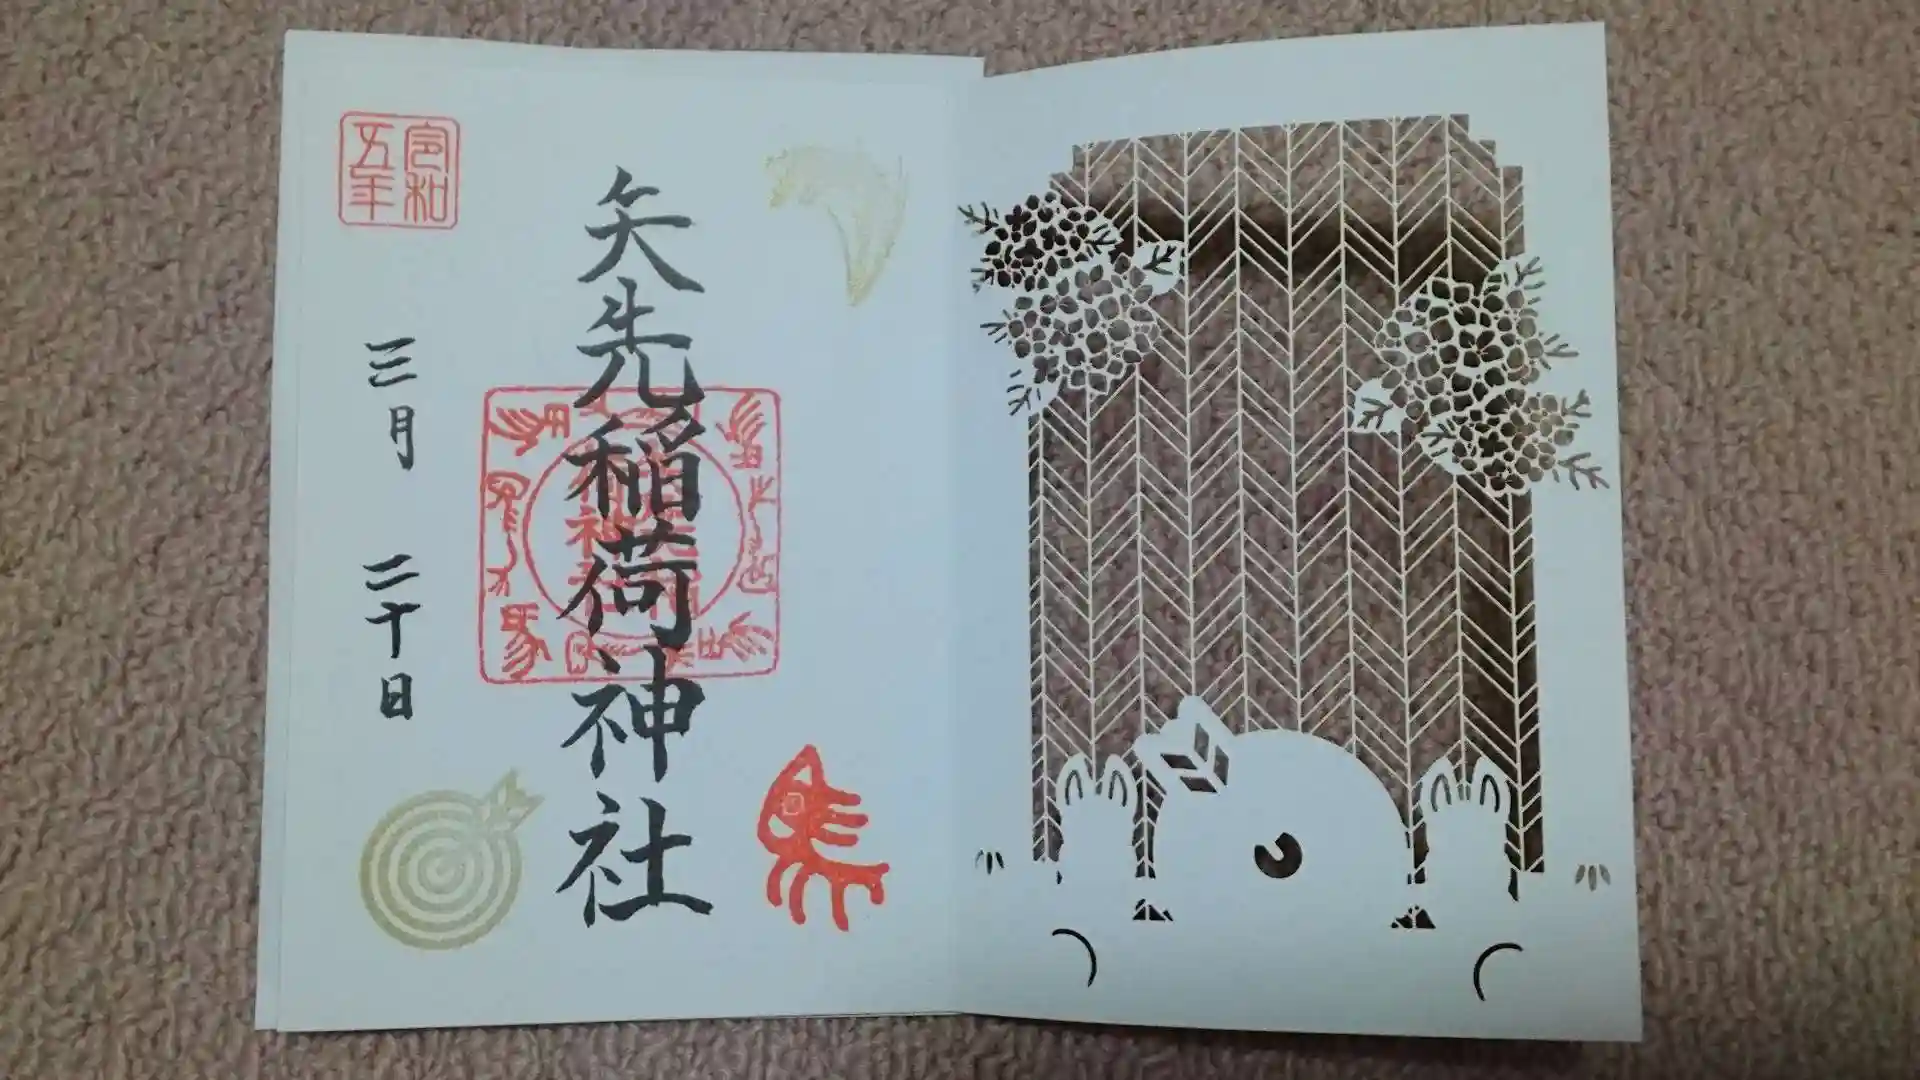 矢先稲荷神社
令和
五年
三月 二十日